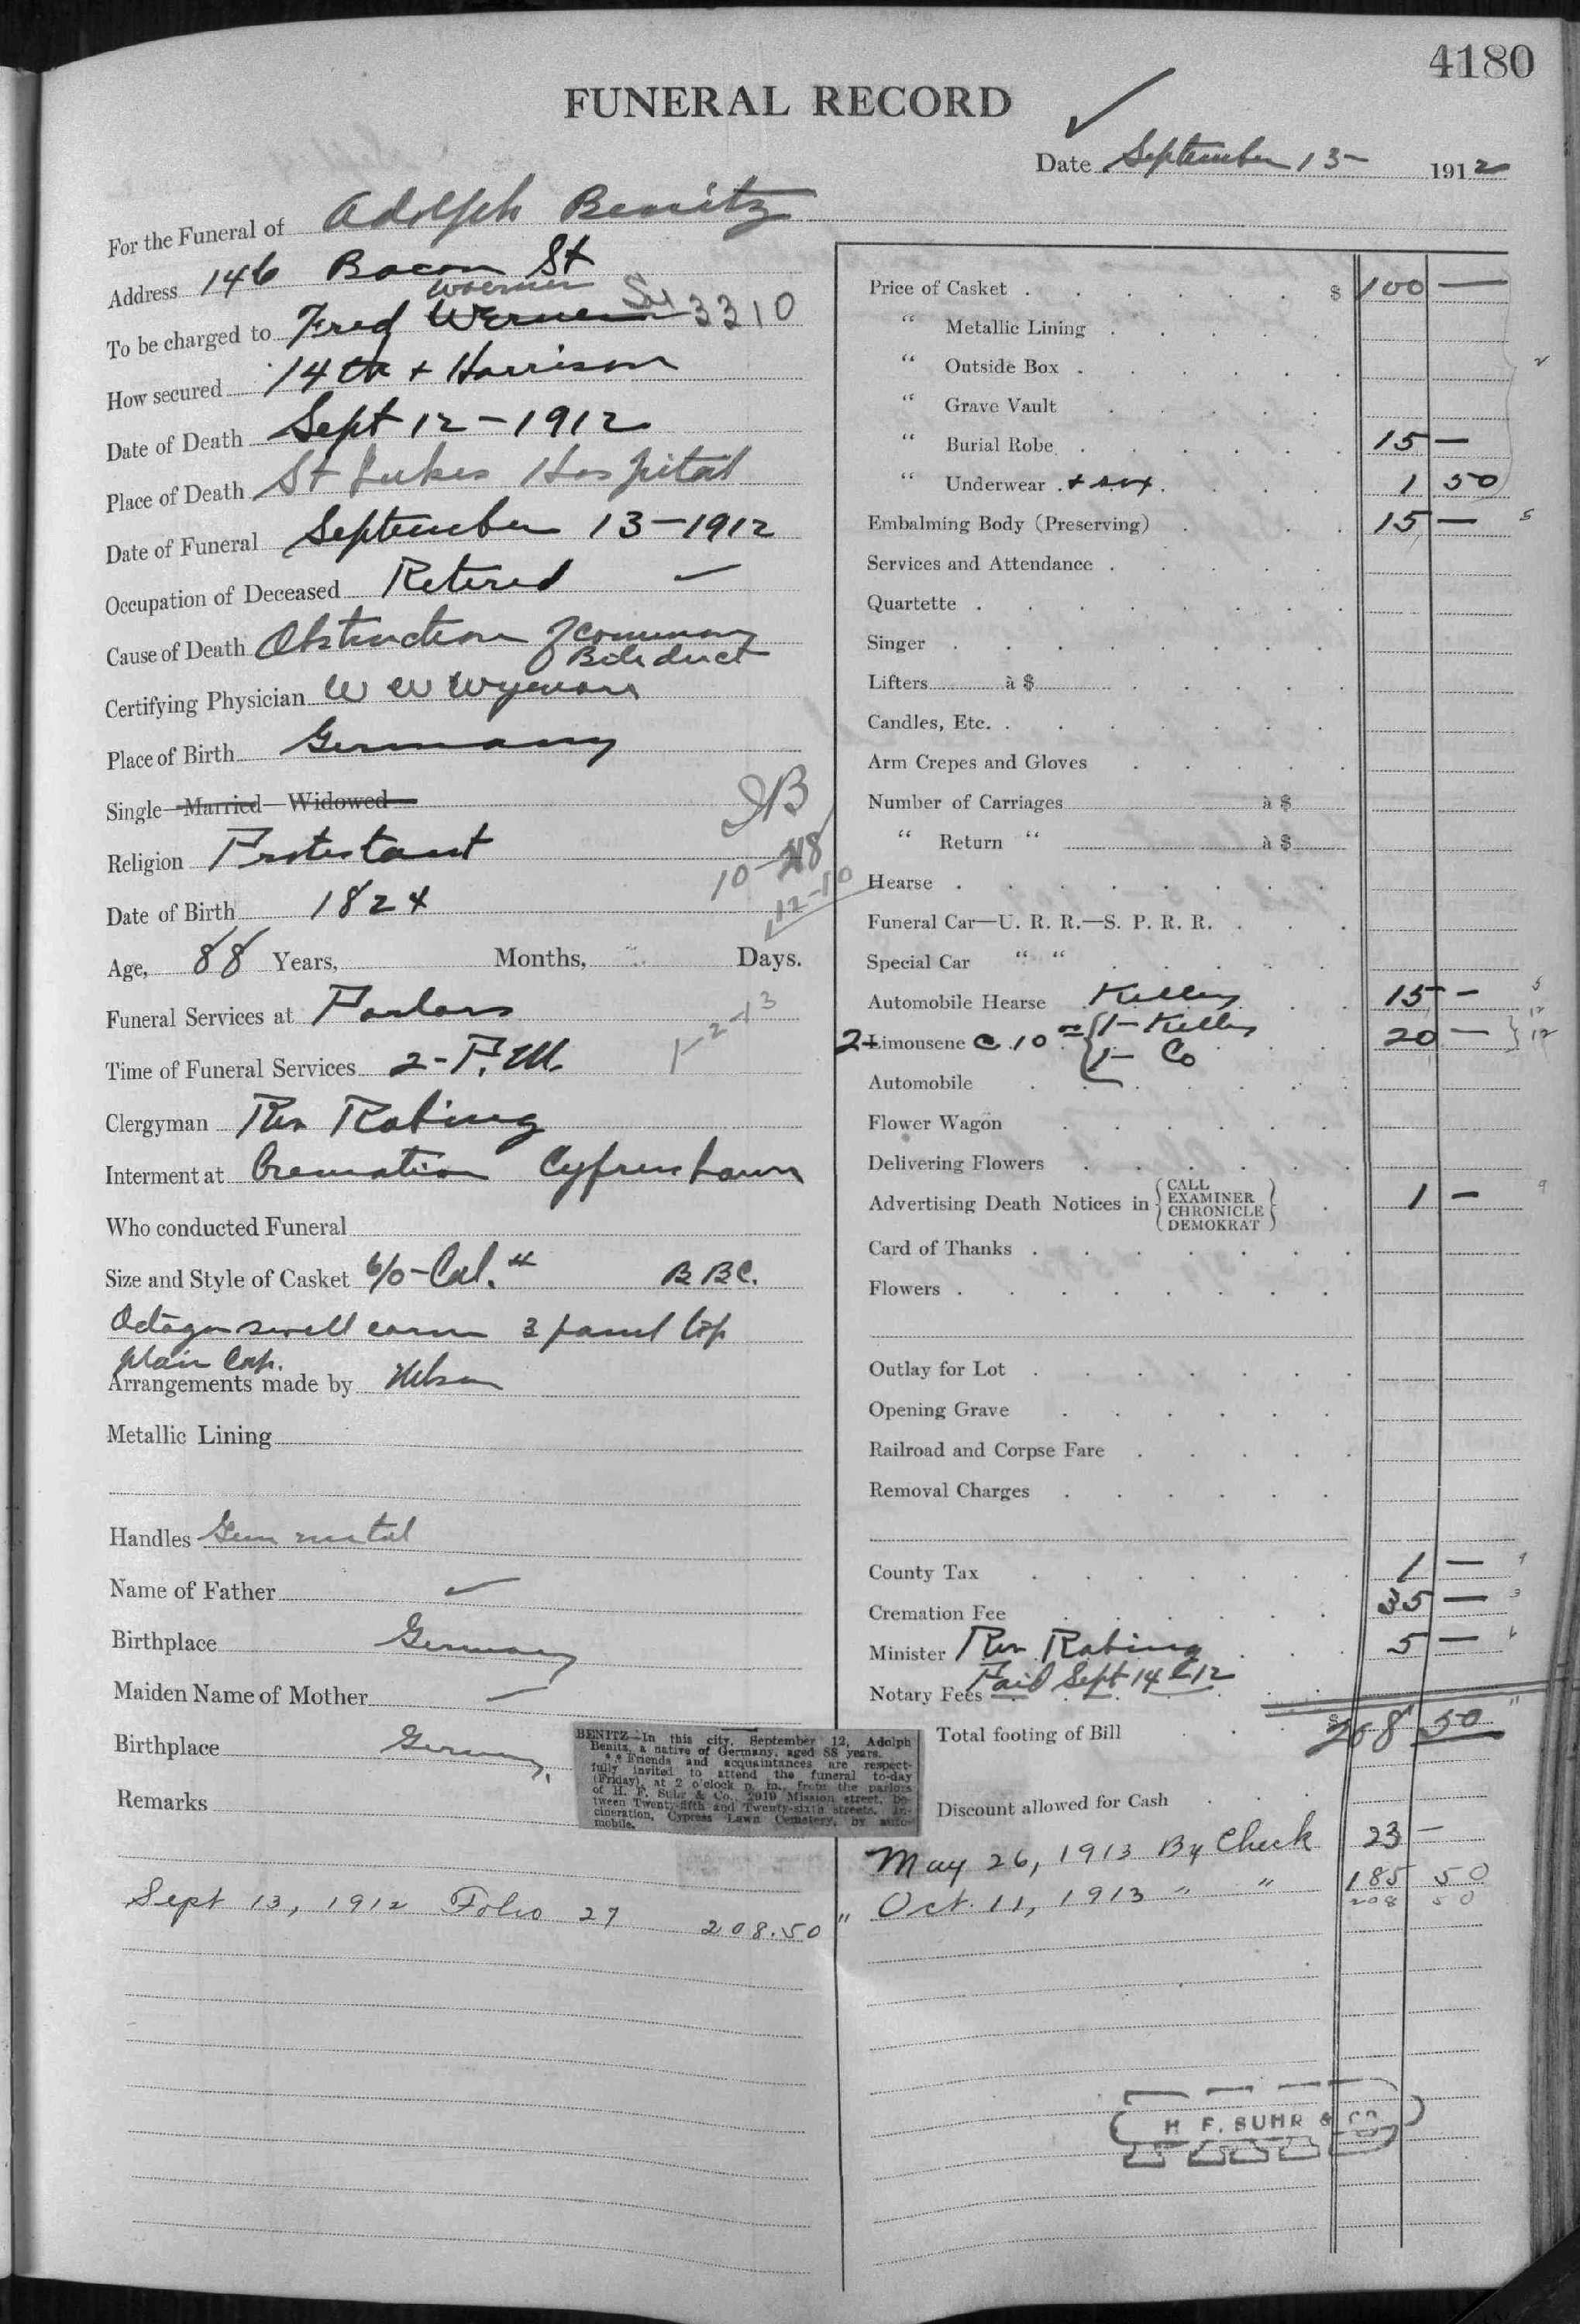 4180
FUNERAL RECORD
Date September 13- 1912
For the Funeral of Adolph Benitz
Address 146 Bacon St
Woerner
To be charged to Fred Werner 3310
How secured 14th + Harrison
Date of Death Sept 12-1912
Place of Death St Lukes Hospital
Date of Funeral September 13-1912
Occupation of Deceased Retired
Cause of Death Obstruction of common
Bile duct
Certifying Physician W W Wymore
Place of Birth Germany
Single—Married—Widowed
Religion Protestant
10-28
Date of Birth 1824
12-10
Age, 88 Years, Months, Days.
Funeral Services at Parlors
1-2-13
Time of Funeral Services 2-P.M.
Clergyman Rev Rabing
Interment at Cremation Cypress Lawn
Who conducted Funeral
Size and Style of Casket 6/0-Cal. B B C.
Octagon swell corner 3 panel top
plain Cap.
Arrangements made by Nelson
Metallic Lining
Handles Gun metal
Name of Father
Birthplace Germany
Maiden Name of Mother
Birthplace Germany
Remarks
BENITZ—In this city, September 12, Adolph
Benitz, a native of Germany, aged 88 years.
** Friends and acquaintances are respect-
fully invited to attend the funeral to-day
(Friday), at 2 o'clock p. m., from the parlors
of H. F. Suhr & Co., 2919 Mission street, be-
tween Twenty-fifth and Twenty-sixth streets. In-
cineration, Cypress Lawn Cemetery, by auto-
mobile.
Sept 13, 1912 Folio 27 208.50
Price of Casket $ 100 —
" Metallic Lining
" Outside Box
" Grave Vault
" Burial Robe 15 —
" Underwear + sox 1 50
Embalming Body (Preserving) 15 — 5
Services and Attendance
Quartette
Singer
Lifters à $
Candles, Etc.
Arm Crepes and Gloves
Number of Carriages à $
" Return " à $
Hearse
Funeral Car—U. R. R.—S. P. R. R.
Special Car " "
Automobile Hearse Kelley 15 —
2-Limousene @ 10 00 { 1- Kelley 20 — 12
1- Co 12
Automobile
Flower Wagon
Delivering Flowers
Advertising Death Notices in { CALL
EXAMINER
CHRONICLE
DEMOKRAT } 1 — 9
Card of Thanks
Flowers
Outlay for Lot
Opening Grave
Railroad and Corpse Fare
Removal Charges
County Tax 1 — 9
Cremation Fee 35 — 3
Minister Rev Rabing 5 —
Paid Sept 14-12
Notary Fees
Total footing of Bill $ 208 50
Discount allowed for Cash
May 26, 1913 By Check 23 —
" Oct. 11, 1913 " " 185 50
208 50
H F. SUHR & CO